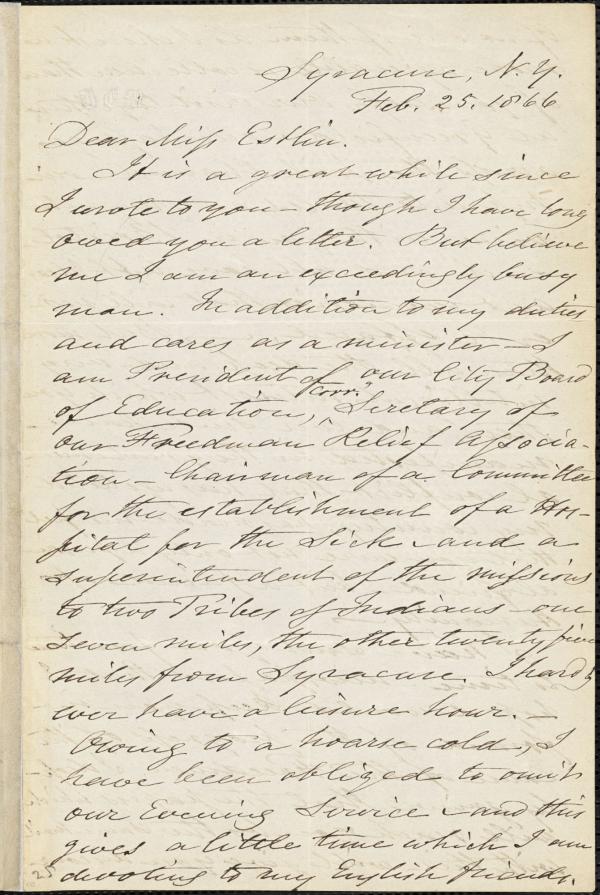 Syracuse, N.Y.
Feb. 25. 1866
Dear Miss Estlin.
It is a great while since
I wrote to you – though I have long
owed you a letter. But believe
me I am an exceedingly busy
man. In addition to my duties
and cares as a minister – I
am President of our City Board
of Education, Corr.g Secretary of
our Freedman Relief Associa-
tion – Chairman of a Committee
for the establishment of a Hos-
pital for the Sick – and a
Superintendent of the missions
to two Tribes of Indians – one
seven miles, the other twenty five
miles from Syracuse. I hardly
ever have a leisure hour. –
Owing to a hoarse cold, I
have been obliged to omit
our Evening Service – and this
gives a little time which I am
devoting to my English friends.
25